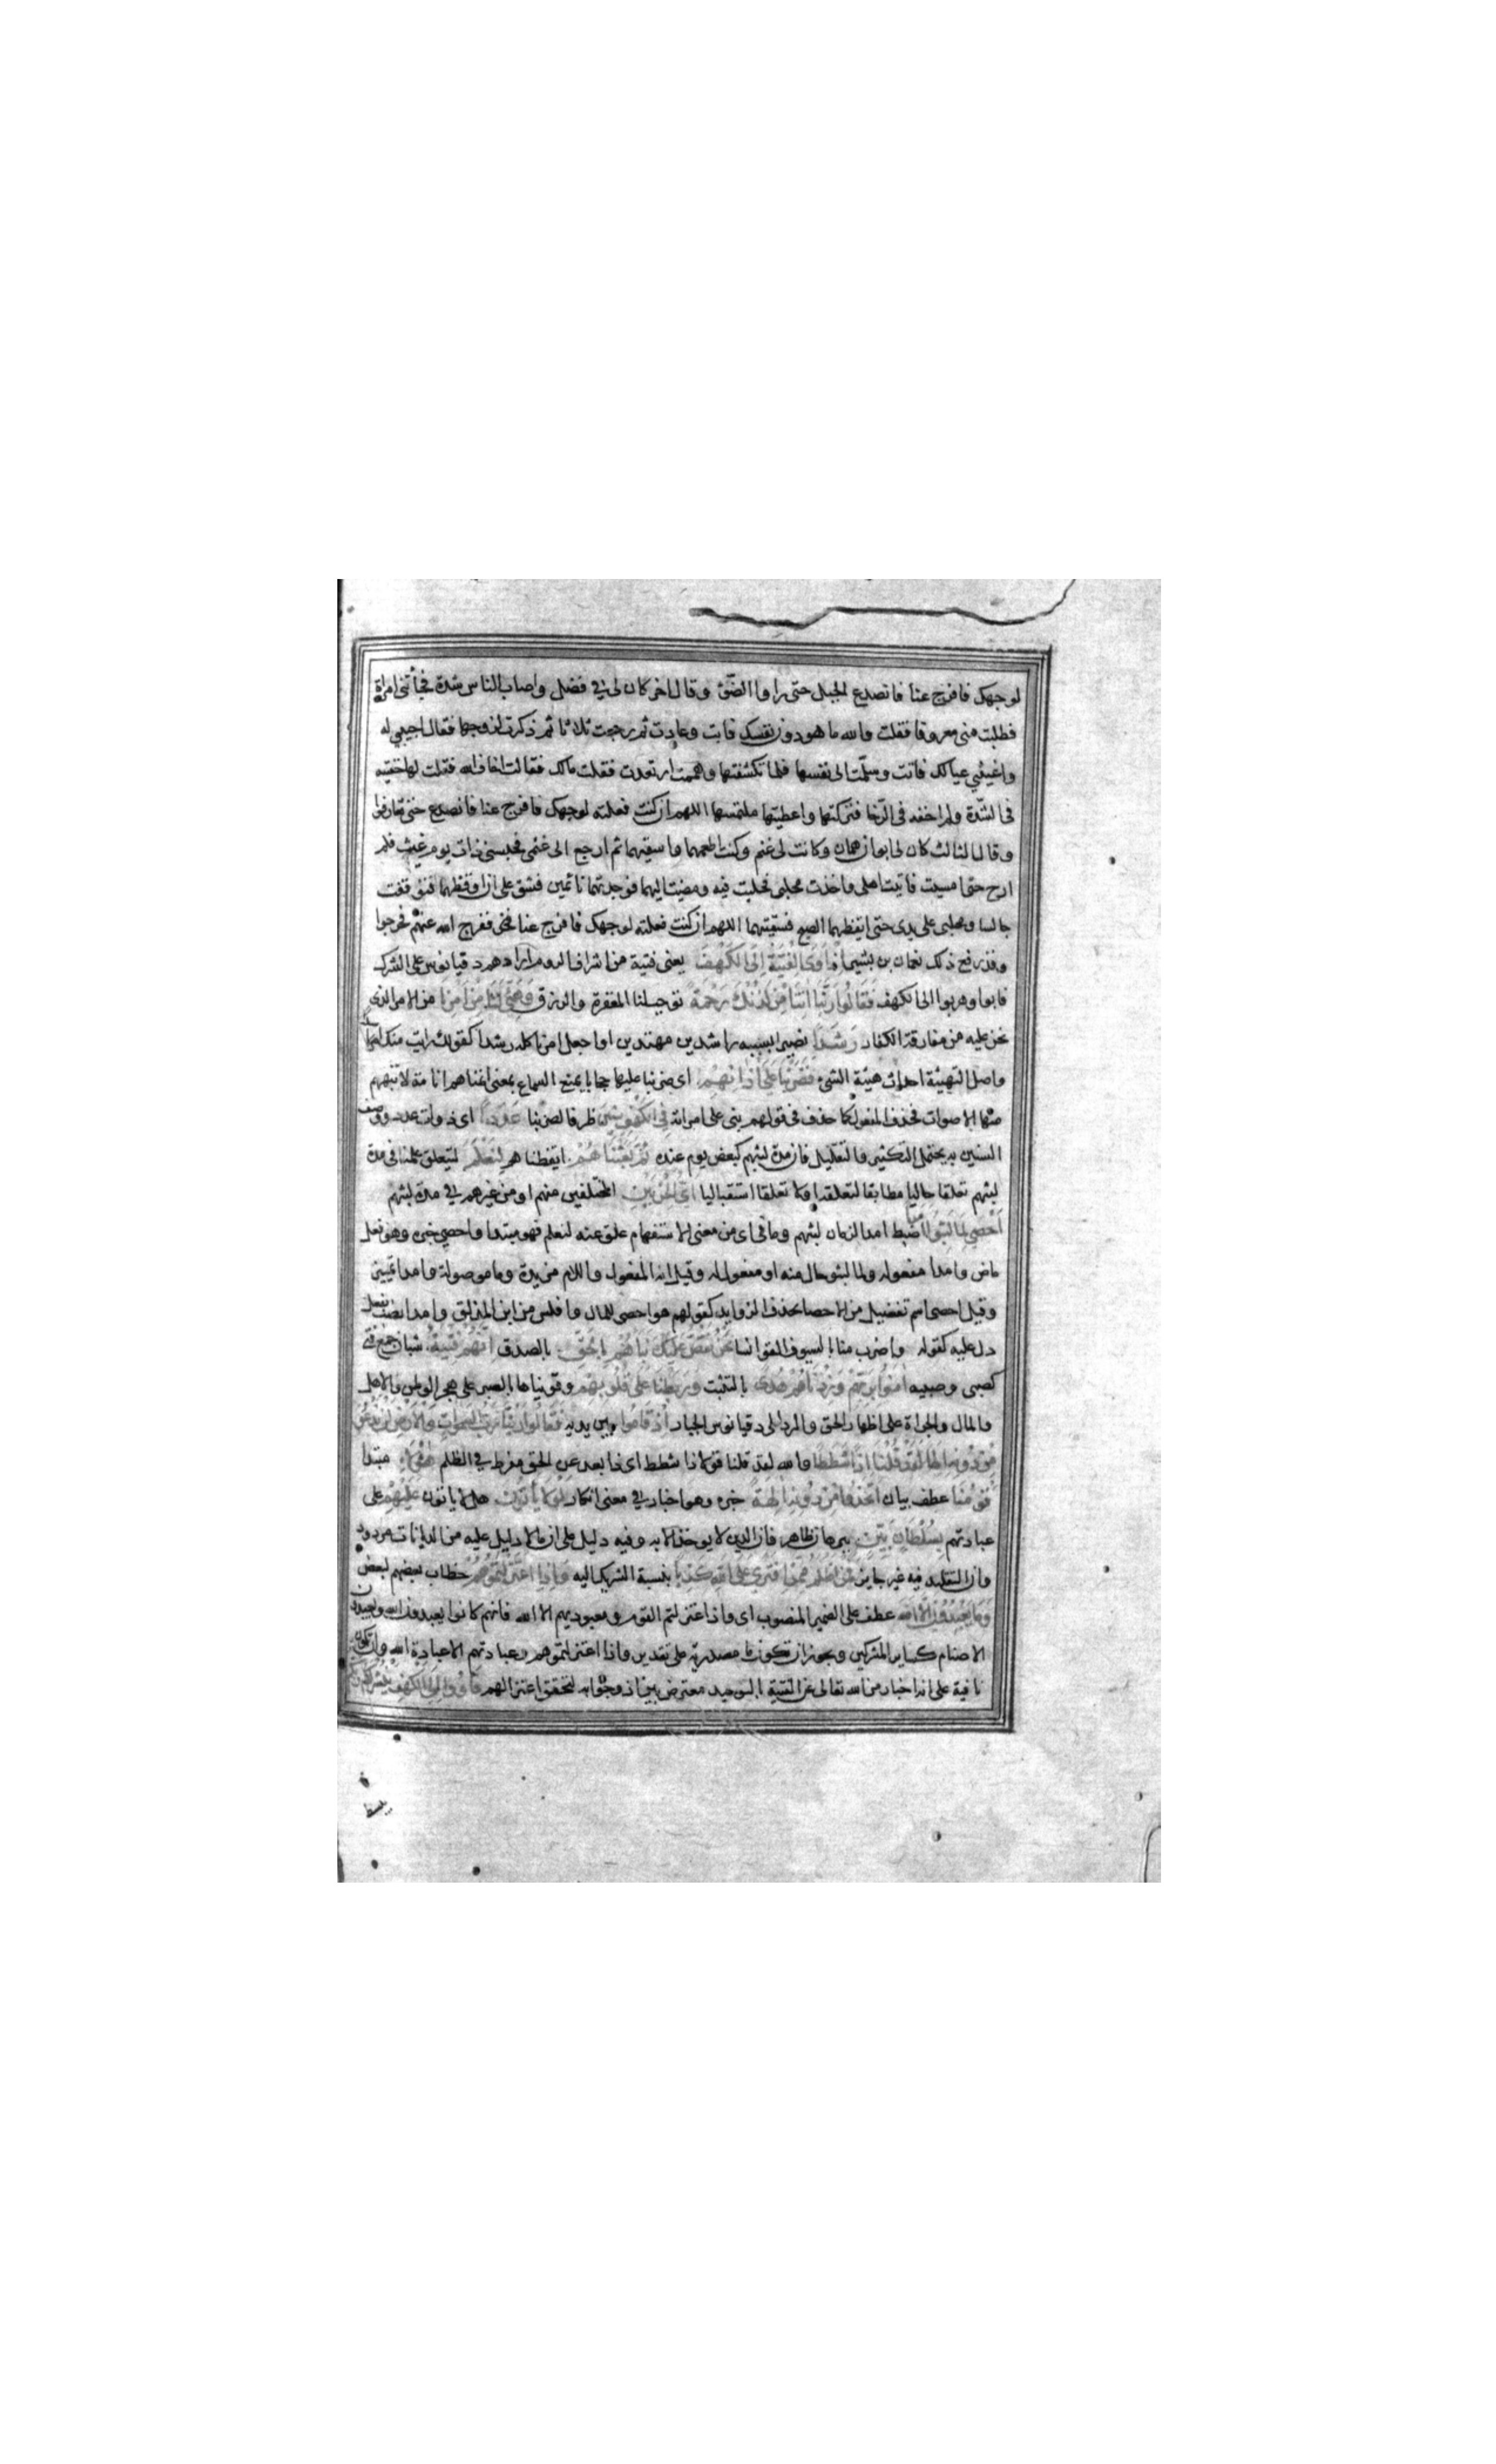 لوجهك فافرج عنا فانصدع الجبل حتى راوا الضوء وقال اخر كان لي في فضل واصاب الناس شدة فجأتني امرأة
فطلبت مني معروفا فقلت والله ما هو دون نفسك فابت وعادت ثم رجعت ثلاثا ثم ذكرت لزوجها فقال اجيبي له
واغيثي عيالك فاتت وسلمت الى نفسها فلما تكشفتها وهممت ارتعدت فقلت مالك فقالت اخاف الله فقلت لها خفتيه
في الشدة ولم اخفه في الرخا فتركتها واعطيتها ملتمسها اللهم ان كنت فعلته لوجهك فافرج عنا فانصدع حتى تعارفوا
وقال الثالث كان لي ابوان همان وكانت لي غنم وكنت اطعمهما واسقيهما ثم ارجع الى غنمي فحبسني ذات يوم غيث فلم
ارح حتى امسيت فاتيت اهلي واخذت محلبي فحلبت فيه ومضيت اليهما فوجدتهما نائمين فشق على ان اوقظهما فتوقفت
جالسا ومحلبي على يدي حتى ايقظهما الصبح فسقيتهما اللهم ان كنت فعلته لوجهك فافرج عنا ففرج الله عنهم فخرجوا
وقد رفع ذلك نعمان بن بشير اذ أوى الفتية الى الكهف يعني فتية من اشراف الروم ارادهم دقيانوس على الشرك
فابوا وهربوا الى الكهف فقالوا ربنا اتنا من لدنك رحمة توجب لنا المغفرة والرزق وهيئ لنا من امرنا من الامر الذي
نحن عليه من مفارقة الكفار رشدا نصير بسببه راشدين مهتدين او اجعل امرنا كله رشدا كقولك رايت منك اسدا
واصل التهيئة احداث هيئة الشئ فضربنا على اذانهم اي ضربنا عليها حجابا يمنع السماع بمعنى انمناهم انامة لا تنبههم
منها الاصوات فحذف المفعول كما حذف في قولهم بنى على امراته في الكهف سنين ظرفا لضربنا عددا اي ذوات عدد ووصف
السنين به يحتمل التكثير والتقليل فان مدة لبثهم كبعض يوم عنده ثم بعثناهم ايقظناهم لنعلم ليتعلق علمنا في مدة
لبثهم تعلقا حاليا مطابقا لتعلقه اولا تعلقا استقباليا اي الحزبين المختلفين منهم او من غيرهم في مدة لبثهم
احصى لما لبثوا امدا ضبط امدا لزمان لبثهم وما في اي من معنى الاستفهام علق عنه لنعلم فهو مبتدا واحصى خبره وهو فعل
ماض وامدا مفعوله ولما لبثوا حال منه او مفعول له وقيل انه المفعول واللام مزيدة وما موصولة وامدا تمييز
وقيل احصى اسم تفضيل من الاحصا بحذف الزوايد كقولهم هو احصى للمال وافلس من ابن المذلق وامدا نصب بفعل
دل عليه كقوله واضرب منا بالسيوف القوانسا نحن نقص عليك نباهم بالحق بالصدق انهم فتية شبان جمع فتى
كصبى وصبيه امنوا بربهم وزدناهم هدى بالتثبت وربطنا على قلوبهم وقويناها بالصبر على هجر الوطن والاهل
والمال والجراة على اظهار الحق والرد على دقيانوس الجبار اذ قاموا بين يديه فقالوا ربنا رب السموات والارض لن ندعو
من دونه الها لقد قلنا اذا شططا والله لقد قلنا قولا ذا شطط اي ذا بعد عن الحق مفرط في الظلم هؤلاء مبتدا
قومنا عطف بيان اتخذوا من دونه الهة خبره وهو اخبار في معنى انكار لولا ياتون هلا ياتون عليهم على
عبادتهم بسلطان بين ببرهان ظاهر فان الدين لا يوخذ الا به وفيه دليل على ان ما لا دليل عليه من الديانات مردود
وان التقليد فيه غير جايز فمن اظلم ممن افترى على الله كذبا بنسبة الشريك اليه واذ اعتزلتموهم خطاب بعضهم لبعض
وما يعبدون الا الله عطف على الضمير المنصوب اي واذ اعتزلتم القوم ومعبوديهم الا الله فانهم كانوا يعبدون الله ويعبدون
الاصنام كساير المشركين ويجوز ان تكون ما مصدرية على تقدير واذ اعتزلتموهم وعبادتهم الا عبادة الله وان تكون
نافية على انه اخبار من الله تعالى عن الفتية بالتوحيد معترض بين اذ وجوابه لتحقق اعتزالهم فاووا الى الكهف ينشر لكم